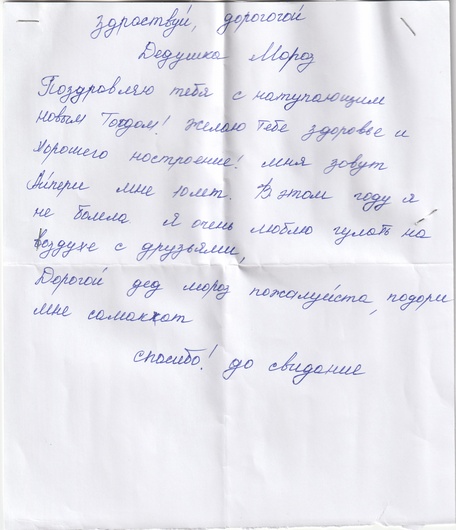 здраствуй, дорогогой
Дедушка Мороз
Поздровляю тебя с натупающим
новым Тогдом! желаю тебе здоровье и
хорошего ностроение! мня зовут
Айпери мне 10лет. В этом году я
не болела я очень люблю гулять на
воздухе с друзьями,
Дорогой дед мороз пожалуйста, подори
мне самокот
спосибо! до свидание